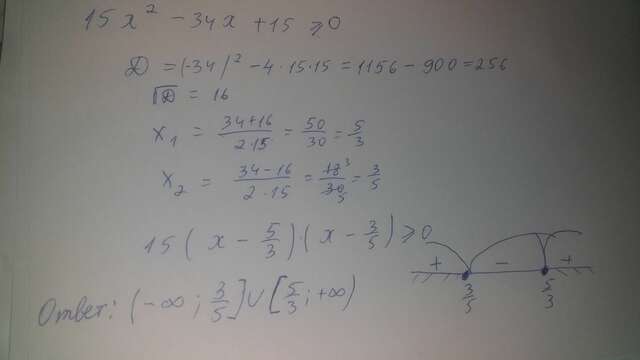 15x² - 34x + 15 ≥ 0
D = (-34)² - 4·15·15 = 1156 - 900 = 256
√D = 16
x₁ = (34+16)/(2·15) = 50/30 = 5/3
x₂ = (34-16)/(2·15) = 18³/30₅ = 3/5
15(x - 5/3)·(x - 3/5) ≥ 0
+ - +
3/5 5/3
Ответ: (-∞; 3/5] ∪ [5/3; +∞)